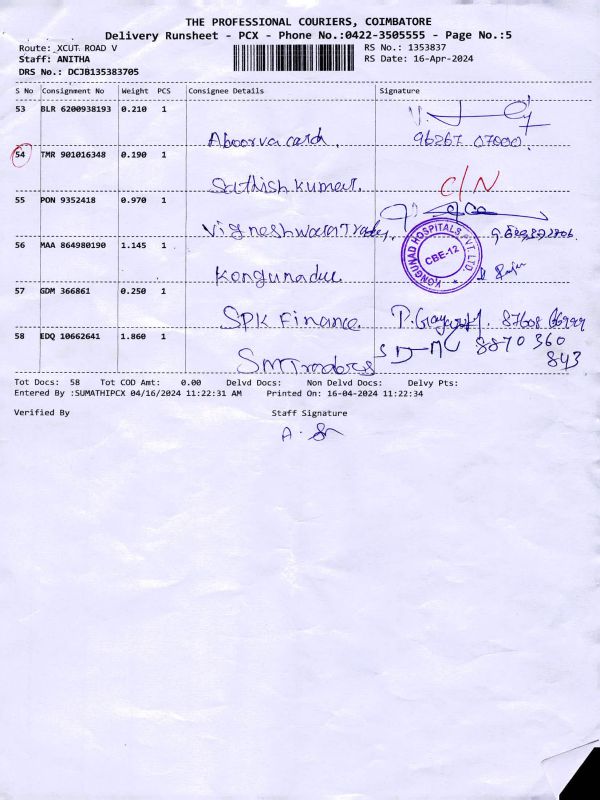 THE PROFESSIONAL COURIERS, COIMBATORE
Delivery Runsheet - PCX - Phone No.:0422-3505555 - Page No.:5
Route: XCUT ROAD V RS No.: 1353837
Staff: ANITHA RS Date: 16-Apr-2024
DRS No.: DCJB135383705
S No Consignment No Weight PCS Consignee Details Signature
53 BLR 6200938193 0.210 1
Aboorva card. 96267 07000.
54 TMR 901016348 0.190 1
Sathish kumar. C/N
55 PON 9352418 0.970 1
Vigneshwara Traders.
56 MAA 864980190 1.145 1
KONGUNAD HOSPITALS PVT. LTD. CBE-12
Kongunadu
57 GDM 366861 0.250 1
SPK Finance.
58 EDQ 10662641 1.860 1
SM Traders 8870 360
843
Tot Docs: 58 Tot COD Amt: 0.00 Delvd Docs: Non Delvd Docs: Delvy Pts:
Entered By :SUMATHIPCX 04/16/2024 11:22:31 AM Printed On: 16-04-2024 11:22:34
Verified By Staff Signature